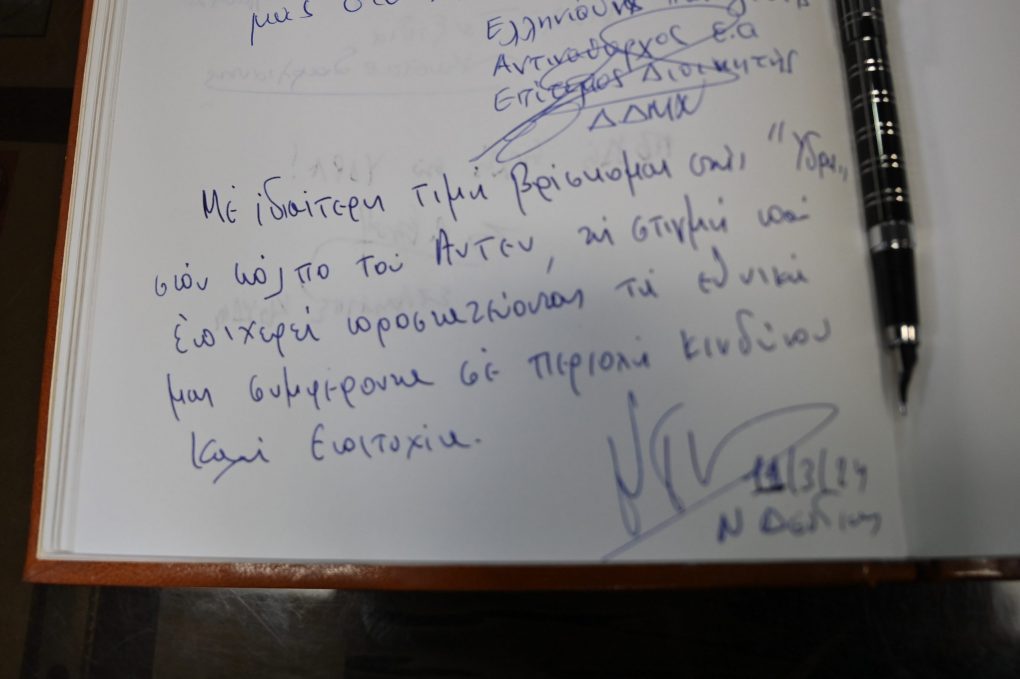 μας
Αντιναύαρχος ε.α
Επίτιμος Διοικητής
ΔΔΜΧ
Με ιδιαίτερη τιμή βρίσκομαι στην "Ύδρα"
στον κόλπο του Αντεν, τη στιγμή που
επιχειρεί προστατεύοντας τα εθνικά
μας συμφέροντα σε περιοχή κινδύνου
Καλή Επιτυχία.
11/3/24
Ν Δένδιας